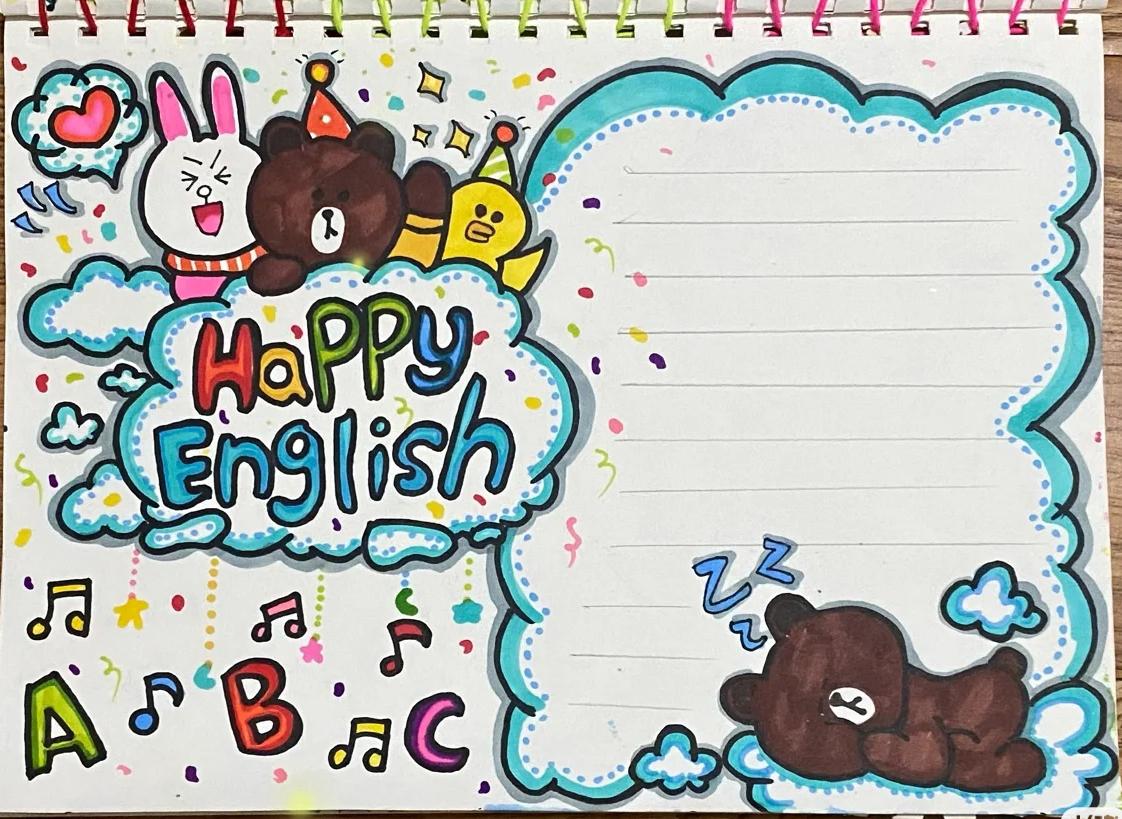 Happy
English
z z
z
A B C